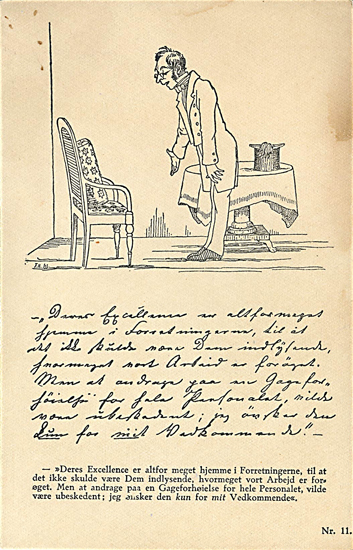 — „Deres Excellence er altformeget
hjemme i Forretningerne, til at
det ikke skulde være Dem indlysende,
hvormeget vort Arbeid er forøget.
Men at andrage paa en Gagefor-
høielse for hele Personalet, vilde
være ubeskedent; jeg ønsker den
kun for mit Vedkommende“. —
— »Deres Excellence er altfor meget hjemme i Forretningerne, til at
det ikke skulde være Dem indlysende, hvormeget vort Arbejd er for-
øget. Men at andrage paa en Gageforhøielse for hele Personalet, vilde
være ubeskedent; jeg ønsker den kun for mit Vedkommende«.
Nr. 11.